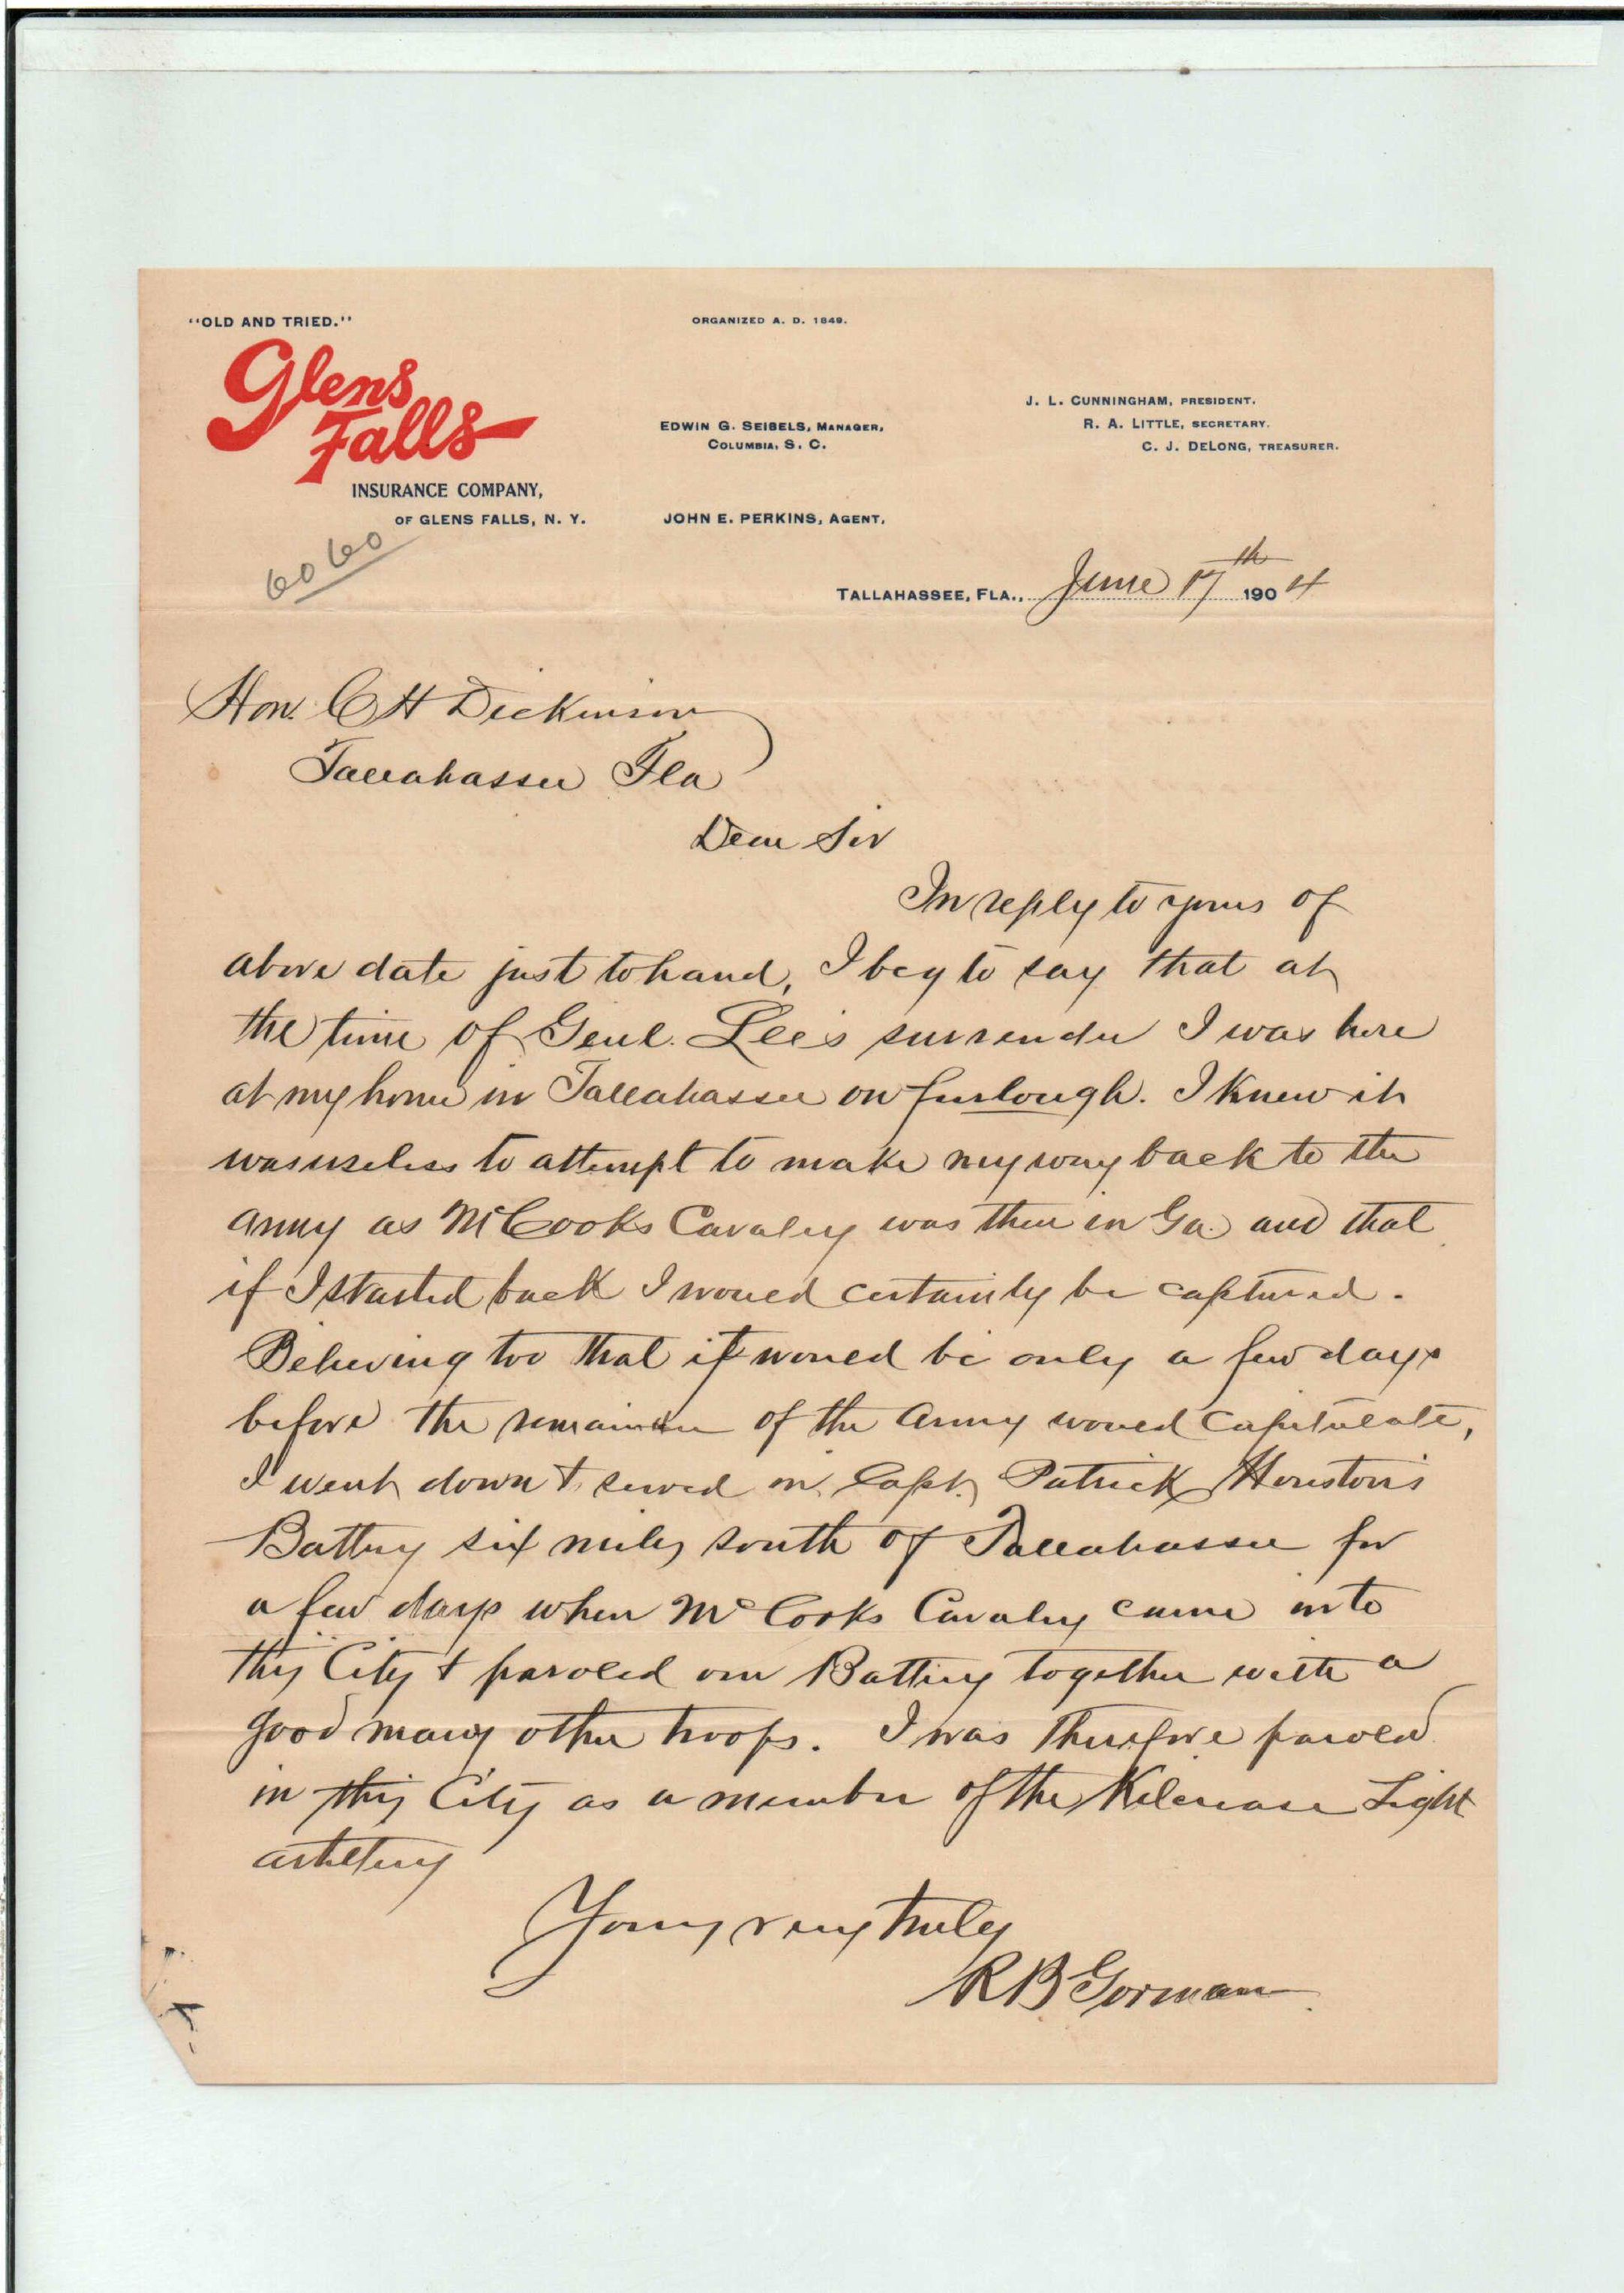 "OLD AND TRIED."
ORGANIZED A. D. 1849.
Glens
Falls
INSURANCE COMPANY,
OF GLENS FALLS, N. Y.
EDWIN G. SEIBELS, MANAGER,
COLUMBIA, S. C.
JOHN E. PERKINS, AGENT.
J. L. CUNNINGHAM, PRESIDENT.
R. A. LITTLE, SECRETARY.
C. J. DELONG, TREASURER.
6060
TALLAHASSEE, FLA., June 17th 1904
Hon. C H Dickinson
Tallahassee Fla
Dear Sir
In reply to yours of
above date just to hand, I beg to say that at
the time of Genl. Lee's surrender I was here
at my home in Tallahassee on furlough. I knew it
was useless to attempt to make my way back to the
army as McCooks Cavalry was then in Ga. and that
if I started back I would certainly be captured.
Believing too that it would be only a few days
before the remainder of the army would capitulate,
I went down & served in Capt. Patrick Houston's
Battery six miles south of Tallahassee for
a few days when McCooks Cavalry came into
this City & paroled our Battery together with a
good many other troops. I was therefore paroled
in this City as a member of the Kilcrease Light
artillery
Yours very truly
R B Gorman